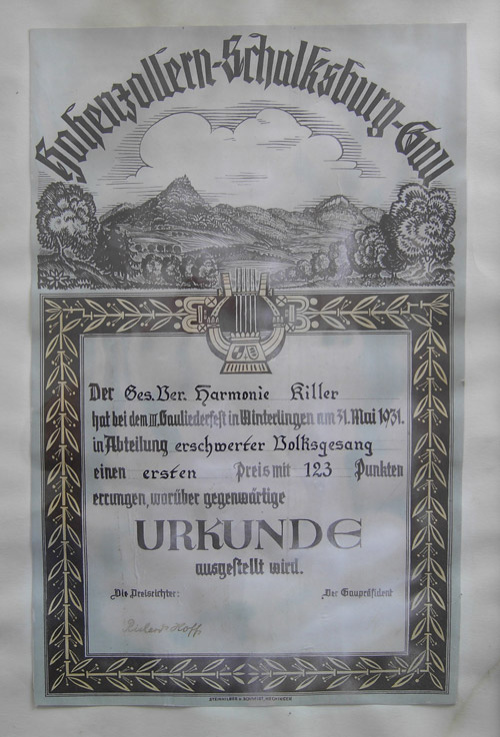 Hohenzollern-Schalksburg-Gau
Der Ges. Ver. Harmonie Killer
hat bei dem III. Gauliederfest in Winterlingen am 31. Mai 1931.
in Abteilung erschwerter Volksgesang
einen ersten Preis mit 123 Punkten
errungen, worüber gegenwärtige
URKUNDE
ausgestellt wird.
Die Preisrichter: Der Gaupräsident
Hoff